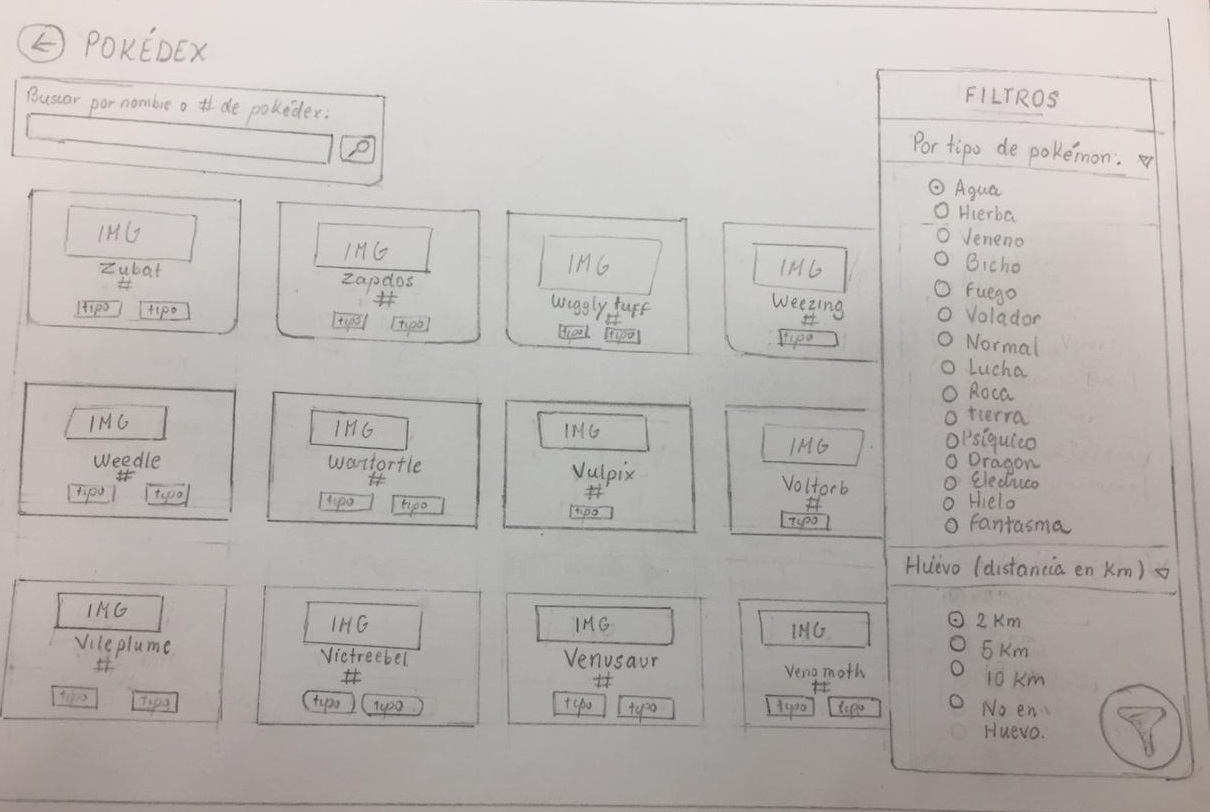 POKÉDEX
Buscar por nombre o # de pokédex:
IMG
Zubat
#
tipo tipo
IMG
Zapdos
#
tipo tipo
IMG
Wigglytuff
#
tipo tipo
IMG
Weezing
#
tipo
IMG
Weedle
#
tipo tipo
IMG
Wartortle
#
tipo tipo
IMG
Vulpix
#
tipo
IMG
Voltorb
#
tipo
IMG
Vileplume
#
tipo tipo
IMG
Victreebel
#
tipo tipo
IMG
Venusaur
#
tipo tipo
IMG
Venomoth
#
tipo tipo
FILTROS
Por tipo de pokémon:
Agua
Hierba
Veneno
Bicho
Fuego
Volador
Normal
Lucha
Roca
tierra
Psíquico
Dragon
Electrico
Hielo
Fantasma
Huevo (distancia en Km)
2 Km
5 Km
10 Km
No en
Huevo.